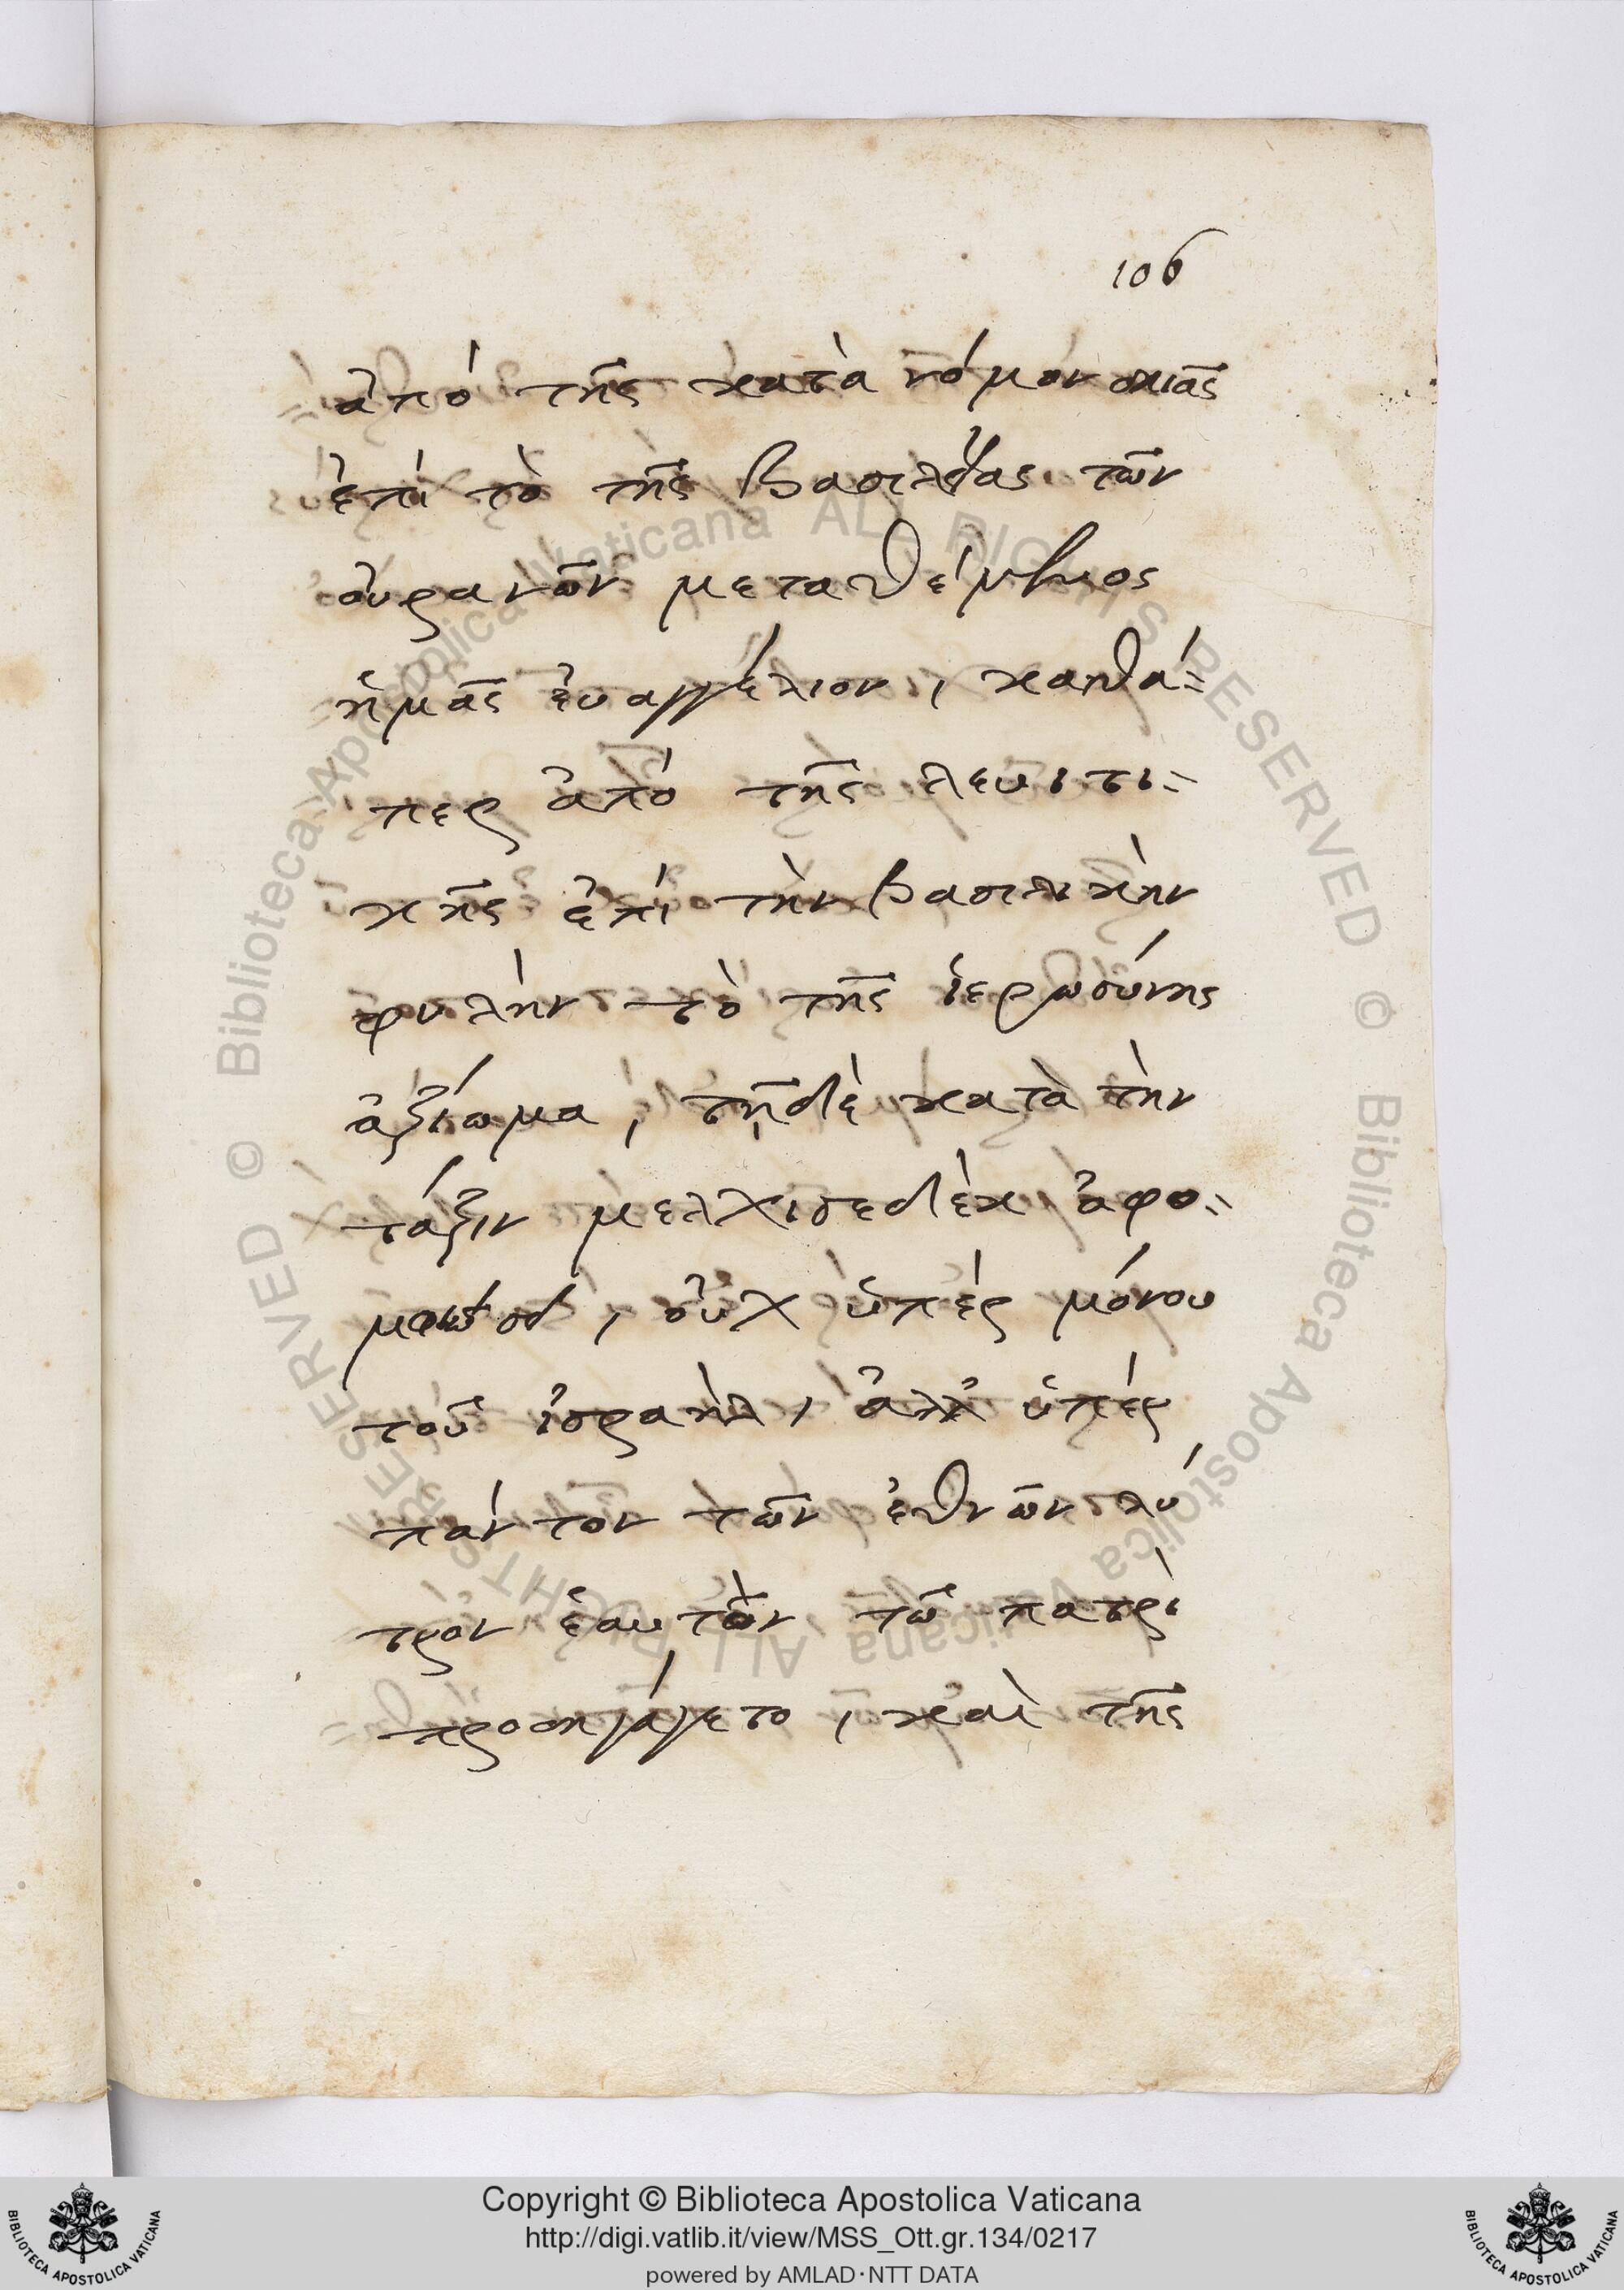 106
ἀπὸ τῆς κατὰ νόμον σκιᾶς
ἐπὶ τὸ τῆς βασιλείας τῶν
οὐρανῶν μεταθέμενος
ἡμᾶς ἐυαγγέλιον, καθά-
περ ἀπὸ τῆς λευιτι-
κῆς ἐπὶ τὴν βασιλικὴν
φυλὴν τὸ τῆς ἱερωσύνης
ἀξίωμα, τῇδὲ κατὰ τὴν
τάξιν μελχισεδὲκ ἀφο-
μοιώσει, οὐχ ὑπὲρ μόνου
τοῦ ἰσραὴλ, ἀλλ' ὑπὲρ
πάντον τῶν ἐθνῶν λύ
τρον ἑαυτὸν τῶ πατρὶ
προσηγάγετο, καὶ τῆς
Copyright © Biblioteca Apostolica Vaticana
http://digi.vatlib.it/view/MSS_Ott.gr.134/0217
powered by AMLAD·NTT DATA
BIBLIOTECA APOSTOLICA VATICANA
BIBLIOTECA APOSTOLICA VATICANA
© Biblioteca Apostolica Vaticana ALL RIGHTS RESERVED
© Biblioteca Apostolica Vaticana ALL RIGHTS RESERVED